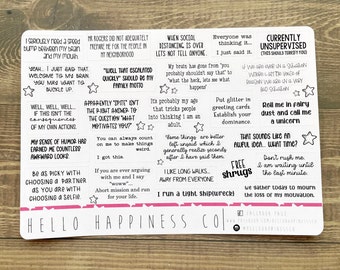 I seriously need a speed
bump between my brain
and my mouth.
Mr Rogers did not adequately
prepare me for the people in
my neighborhood
When social
distancing is over
lets not tell anyone.
Everyone was
thinking it...
I just said it.
CURRENTLY
UNSUPERVISED
Yeah... I just said that
Welcome to my brain
You may want to
hold on.
"Well, that escalated
quickly" should be my
family motto
My brain has gone from "you
probably shouldn't say that" to
"what the heck, lets see
what happens."
Well, well, well...
if this isn't the
consequences
of my own actions.
Apparently "spite" isn't
the right answer to
the question "what
motivates you?"
It's probably my age
that tricks people
into thinking I am an
adult.
Put glitter in
greeting cards.
Establish your
dominance.
Roll me in fairy
dust and call me
a unicorn
My sense of humor has
earned me countless
awkward looks
You can always count
on me to make things
weird.
I got this.
Some things are better
left unsaid which I
generally realize seconds
after I have said them
That sounds like an
awful idea... what time?
Be as picky with
choosing a partner
as you are with
choosing a selfie.
If you are ever arguing
with me and I say
"wow"...
Abort mission and run
for your life.
I like long walks...
away from everyone
FREE
shrugs
Don't rush me.
I am waiting until
the last minute.
I run a tight shipwreck!
We gather today to mourn
the loss of my motivation.
HELLO HAPPINESS CO